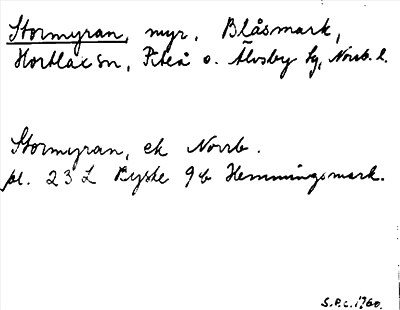 Stormyran, myr, Blåsmark,
Hortlax sn, Piteå o. Älvsby tg, Norrb. l.
Stormyran, ek Norrb.
pl. 23 L Byske 9b Hemmingsmark.
S.P.C. 1960.